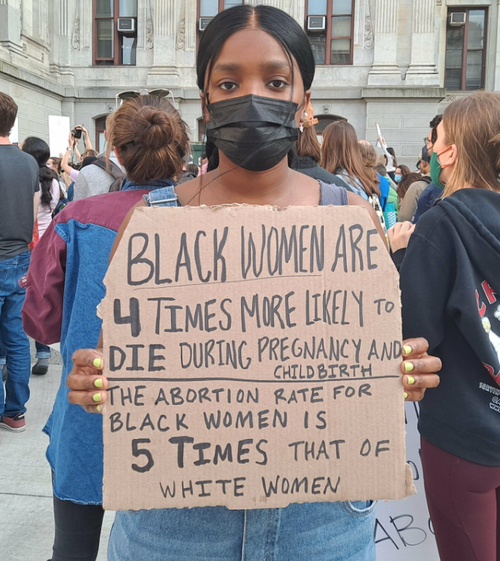 BLACK WOMEN ARE
4 TIMES MORE LIKELY TO
DIE DURING PREGNANCY AND
CHILDBIRTH
THE ABORTION RATE FOR
BLACK WOMEN IS
5 TIMES THAT OF
WHITE WOMEN
ABO